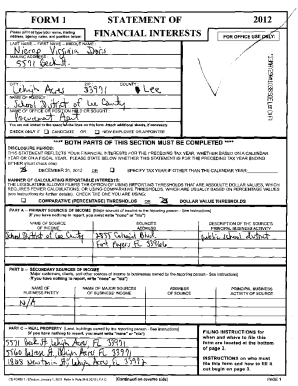 FORM 1 STATEMENT OF 2012
Please print or type your name, mailing address, agency name, and position below: FINANCIAL INTERESTS
FOR OFFICE USE ONLY:
LAST NAME -- FIRST NAME -- MIDDLE NAME:
Virginia Doris
MAILING ADDRESS:
5591 Beck St.
CITY: ZIP: COUNTY:
Lehigh Acres Lee
NAME OF AGENCY:
School District of Lee County
NAME OF OFFICE OR POSITION HELD OR SOUGHT:
Procurement Agent
CHECK ONLY IF CANDIDATE OR NEW EMPLOYEE OR APPOINTEE
**** BOTH PARTS OF THIS SECTION MUST BE COMPLETED ****
DISCLOSURE PERIOD:
THIS STATEMENT REFLECTS YOUR FINANCIAL INTERESTS FOR THE PRECEDING TAX YEAR, WHETHER BASED ON A CALENDAR
YEAR OR ON A FISCAL YEAR. PLEASE STATE BELOW WHETHER THIS STATEMENT IS FOR THE PRECEDING TAX YEAR ENDING
EITHER (must check one):
DECEMBER 31, 2012 OR SPECIFY TAX YEAR IF OTHER THAN THE CALENDAR YEAR:
MANNER OF CALCULATING REPORTABLE INTERESTS:
THE LEGISLATURE ALLOWS FILERS THE OPTION OF USING REPORTING THRESHOLDS THAT ARE ABSOLUTE DOLLAR VALUES, WHICH
REQUIRES FEWER CALCULATIONS, OR USING COMPARATIVE THRESHOLDS, WHICH ARE USUALLY BASED ON PERCENTAGE VALUES
COMPARATIVE (PERCENTAGE) THRESHOLDS OR DOLLAR VALUE THRESHOLDS
PART A -- PRIMARY SOURCES OF INCOME [Major sources of income to the reporting person - See instructions]
(If you have nothing to report, you must write "none" or "n/a")
NAME OF SOURCE OF INCOME SOURCE'S ADDRESS DESCRIPTION OF THE SOURCE'S PRINCIPAL BUSINESS ACTIVITY
School District of Lee County 2855 Colonial Blvd. public school district
Fort Myers FL 33966
PART B -- SECONDARY SOURCES OF INCOME
[Major customers, clients, and other sources of income to businesses owned by the reporting person - See instructions]
(If you have nothing to report, you must write "none" or "n/a")
NAME OF BUSINESS ENTITY NAME OF MAJOR SOURCES OF BUSINESS' INCOME ADDRESS OF SOURCE PRINCIPAL BUSINESS ACTIVITY OF SOURCE
N/A
PART C -- REAL PROPERTY [Land, buildings owned by the reporting person - See instructions]
(If you have nothing to report, you must write "none" or "n/a")
5591 Beck St. Lehigh Acres, FL 33971
FILING INSTRUCTIONS for when and where to file this form are located at the bottom of page 2.
INSTRUCTIONS on who must file this form and how to fill it out begin on page 3.
CE FORM 1 (Continued on reverse side) PAGE 1